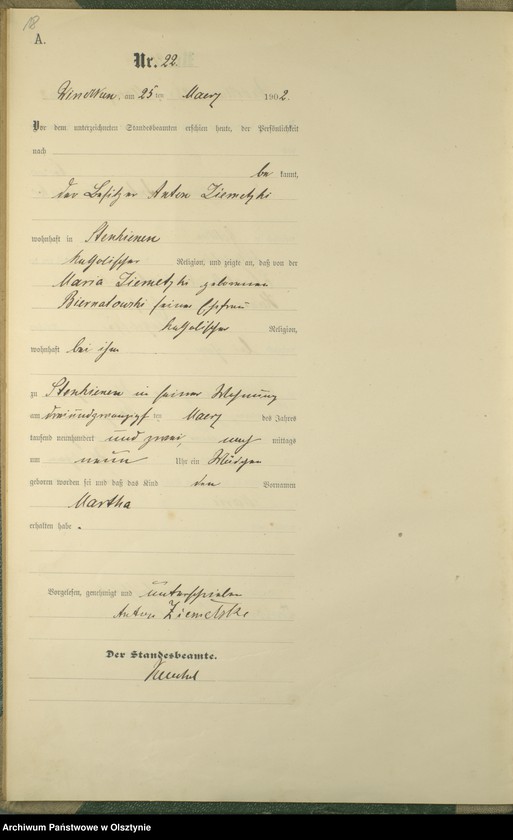 18
A.
Nr. 22.
am 25 ten Maerz 1902.
Vor dem unterzeichneten Standesbeamten erschien heute, der Persönlichkeit
nach
be kannt,
der Besitzer Anton Ziemetzki
wohnhaft in Stenkienen
katholischer Religion, und zeigte an, daß von der
Maria Ziemetzki geborenen
Biernatowski seiner Ehefrau
katholischer Religion,
wohnhaft bei ihm
zu Stenkienen in seiner Wohnung
am dreiundzwanzigst ten Maerz des Jahres
tausend neunhundert und zwei, nach mittags
um neun Uhr ein Mädchen
geboren worden sei und daß das Kind den Vornamen
Martha
erhalten habe.
Vorgelesen, genehmigt und unterschrieben
Anton Ziemetzki
Der Standesbeamte.
Archiwum Państwowe w Olsztynie